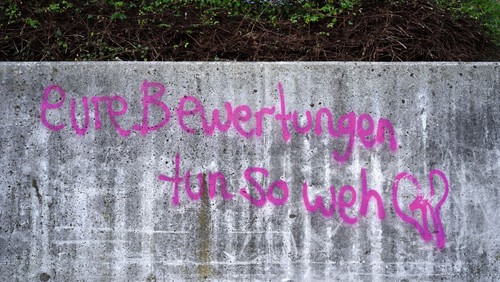 eure Bewertungen
tun so weh